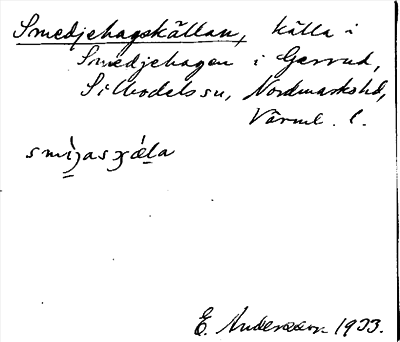 Smedjehagskällan, källa i
Smedjehagen i Gersrud,
Silbodals sn, Nordmarks hd,
Värml. l.
E. Andersson 1933.